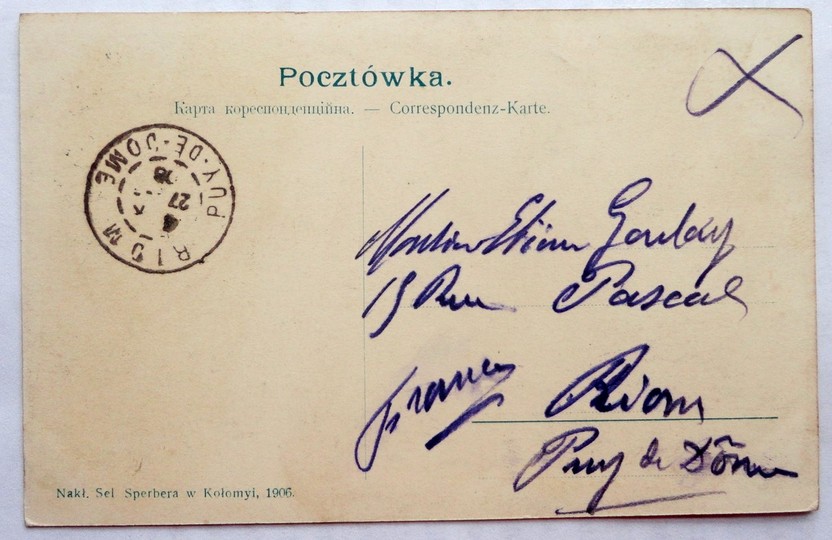 Pocztówka.
Карта кореспонденцїйна. — Correspondenz-Karte.
RIOM
PUY-DE-DOME
27
Etienne Goulay
15 Rue Pascal
France
Riom
Puy de Dôme
Nakł. Sel Sperbera w Kołomyi, 1906.